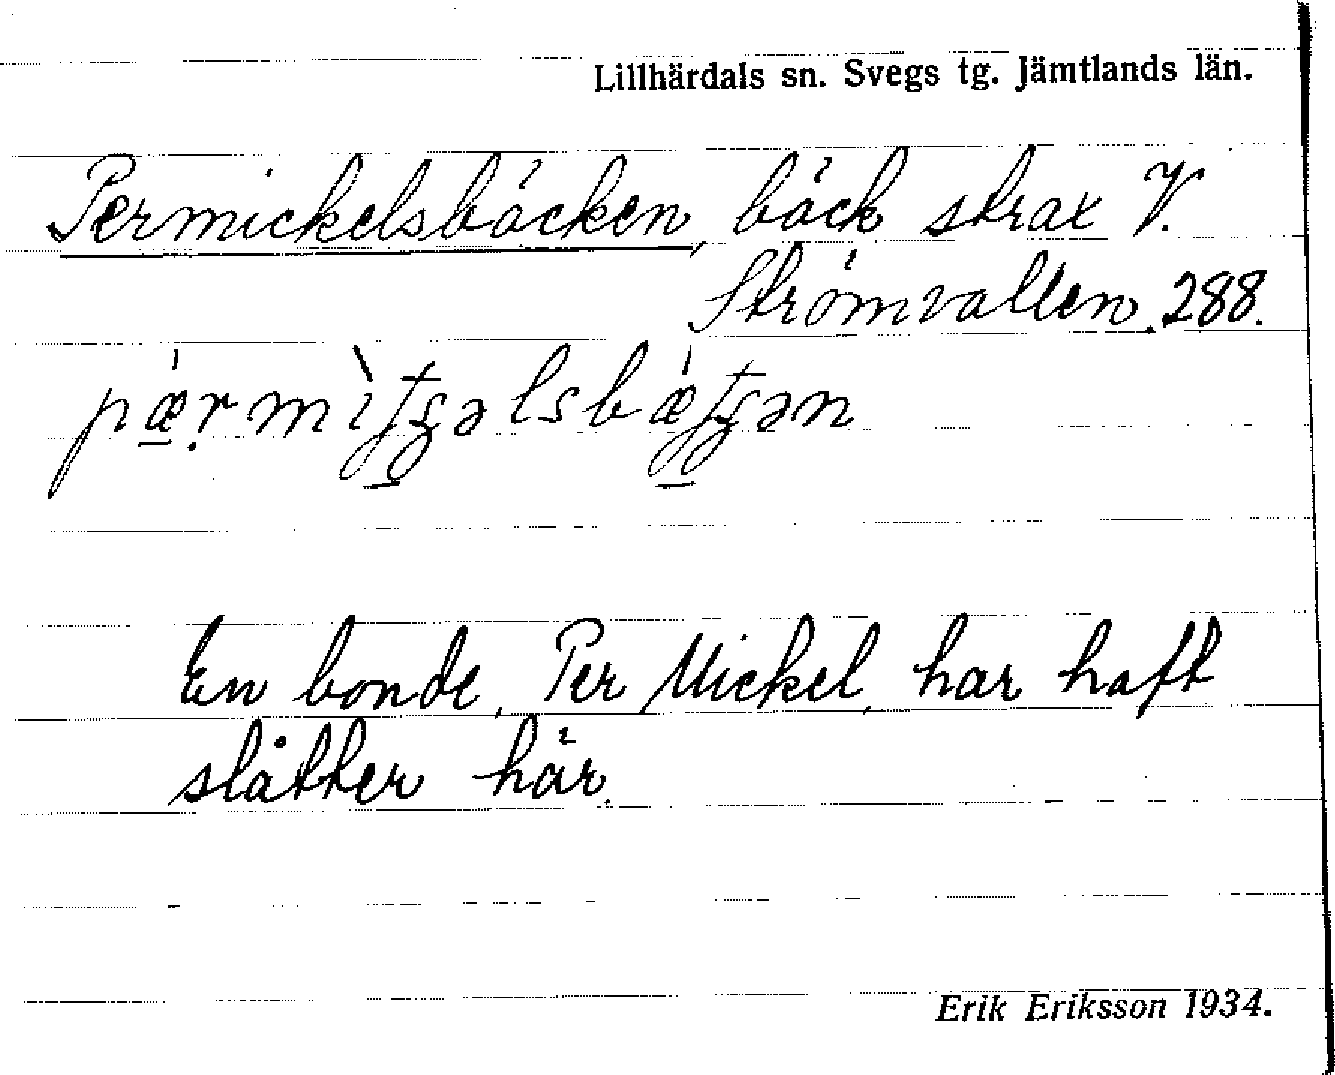 Lillhärdals sn. Svegs tg. Jämtlands län.
Permickelsbäcken, bäck strax V.
Strömvallen. 288.
En bonde, Per Mickel, har haft
slåtter här.
Erik Eriksson 1934.